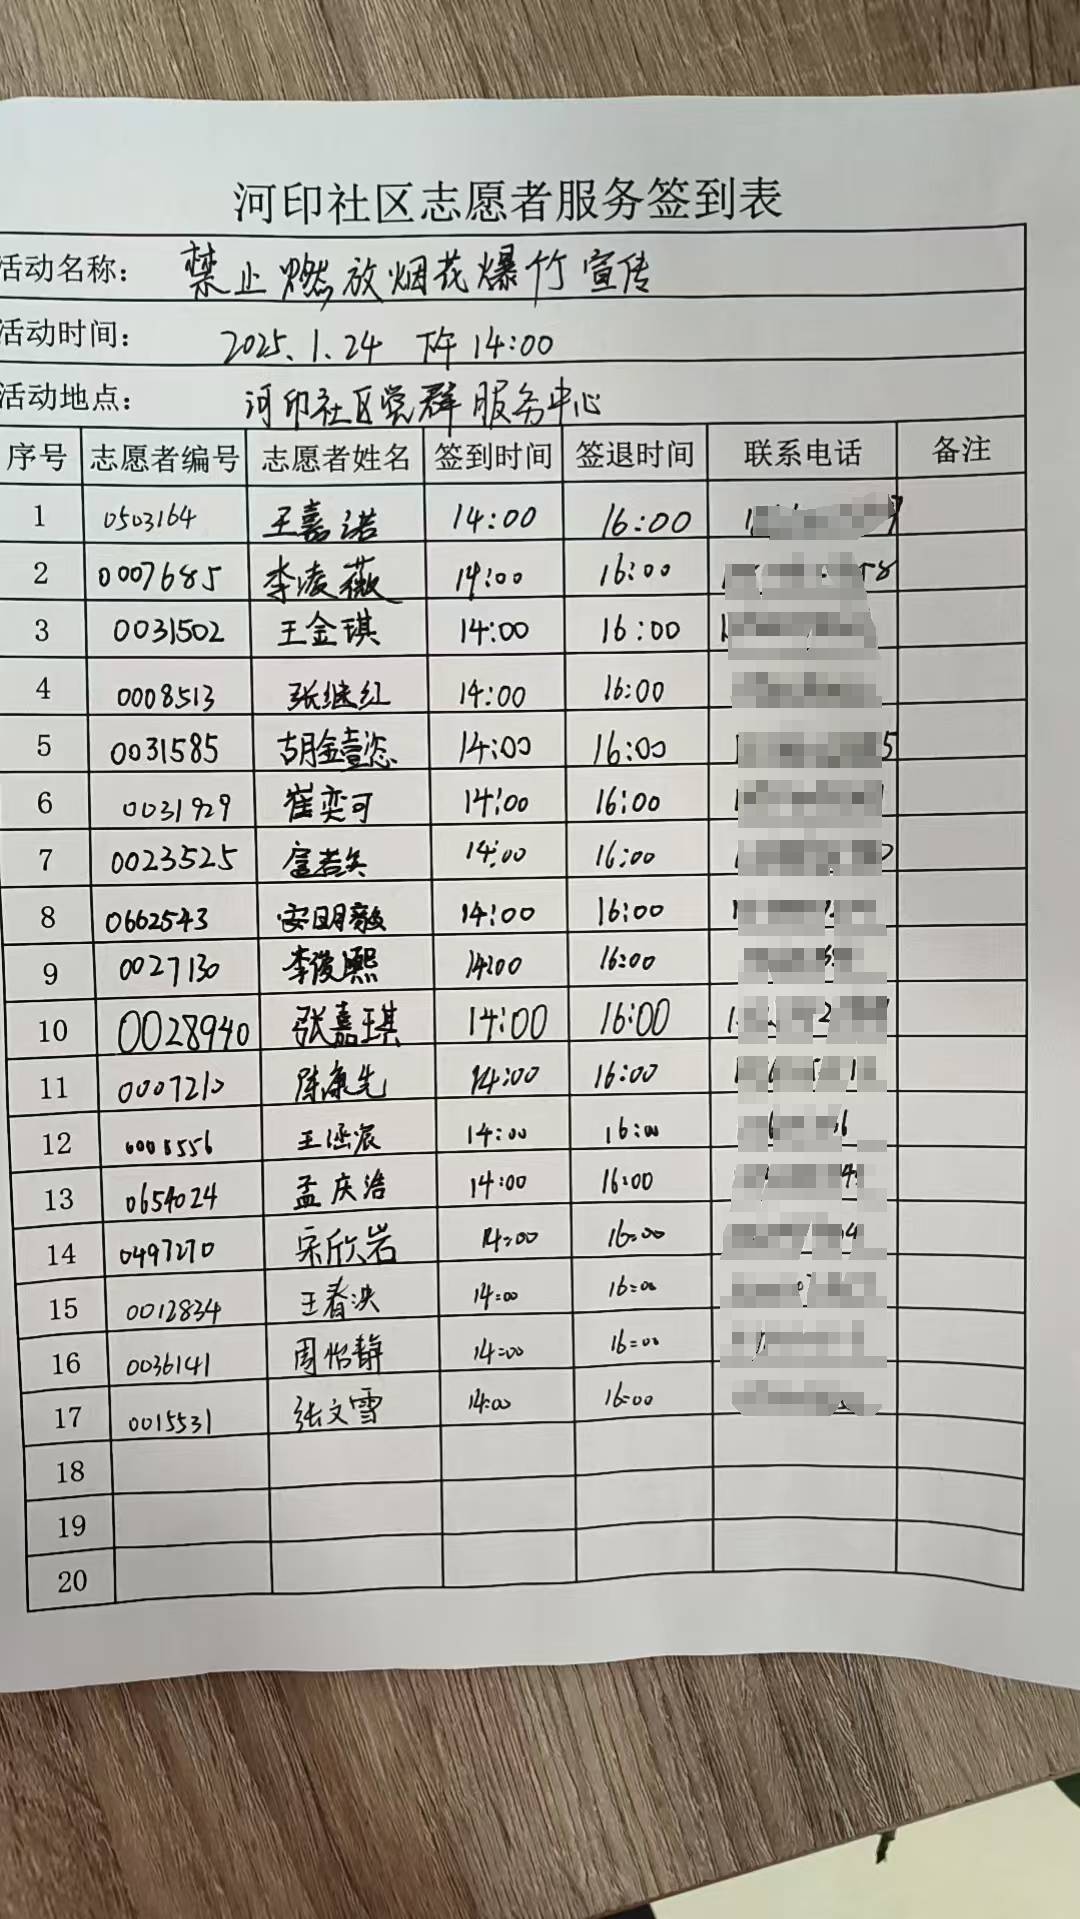 河印社区志愿者服务签到表
活动名称: 禁止燃放烟花爆竹宣传
活动时间: 2025.1.24 下午14:00
活动地点: 河印社区党群服务中心
序号 志愿者编号 志愿者姓名 签到时间 签退时间 联系电话 备注
1 0503164 王嘉诺 14:00 16:00
2 0007685 李凌薇 14:00 16:00
3 0031502 王金琪 14:00 16:00
4 0008513 张继红 14:00 16:00
5 0031585 胡金壹恣 14:00 16:00
6 0031929 崔奕可 14:00 16:00
7 0023525 14:00 16:00
8 0662543 安明毅 14:00 16:00
9 0027130 李俊熙 14:00 16:00
10 0028940 张嘉琪 14:00 16:00
11 0007210 陈康先 14:00 16:00
12 0008556 王涵宸 14:00 16:00
13 0654024 孟庆浩 14:00 16:00
14 0497270 宋欣岩 14:00 16:00
15 0012834 王春泱 14:00 16:00
16 0036141 周怡静 14:00 16:00
17 0015531 张文雪 14:00 16:00
18
19
20